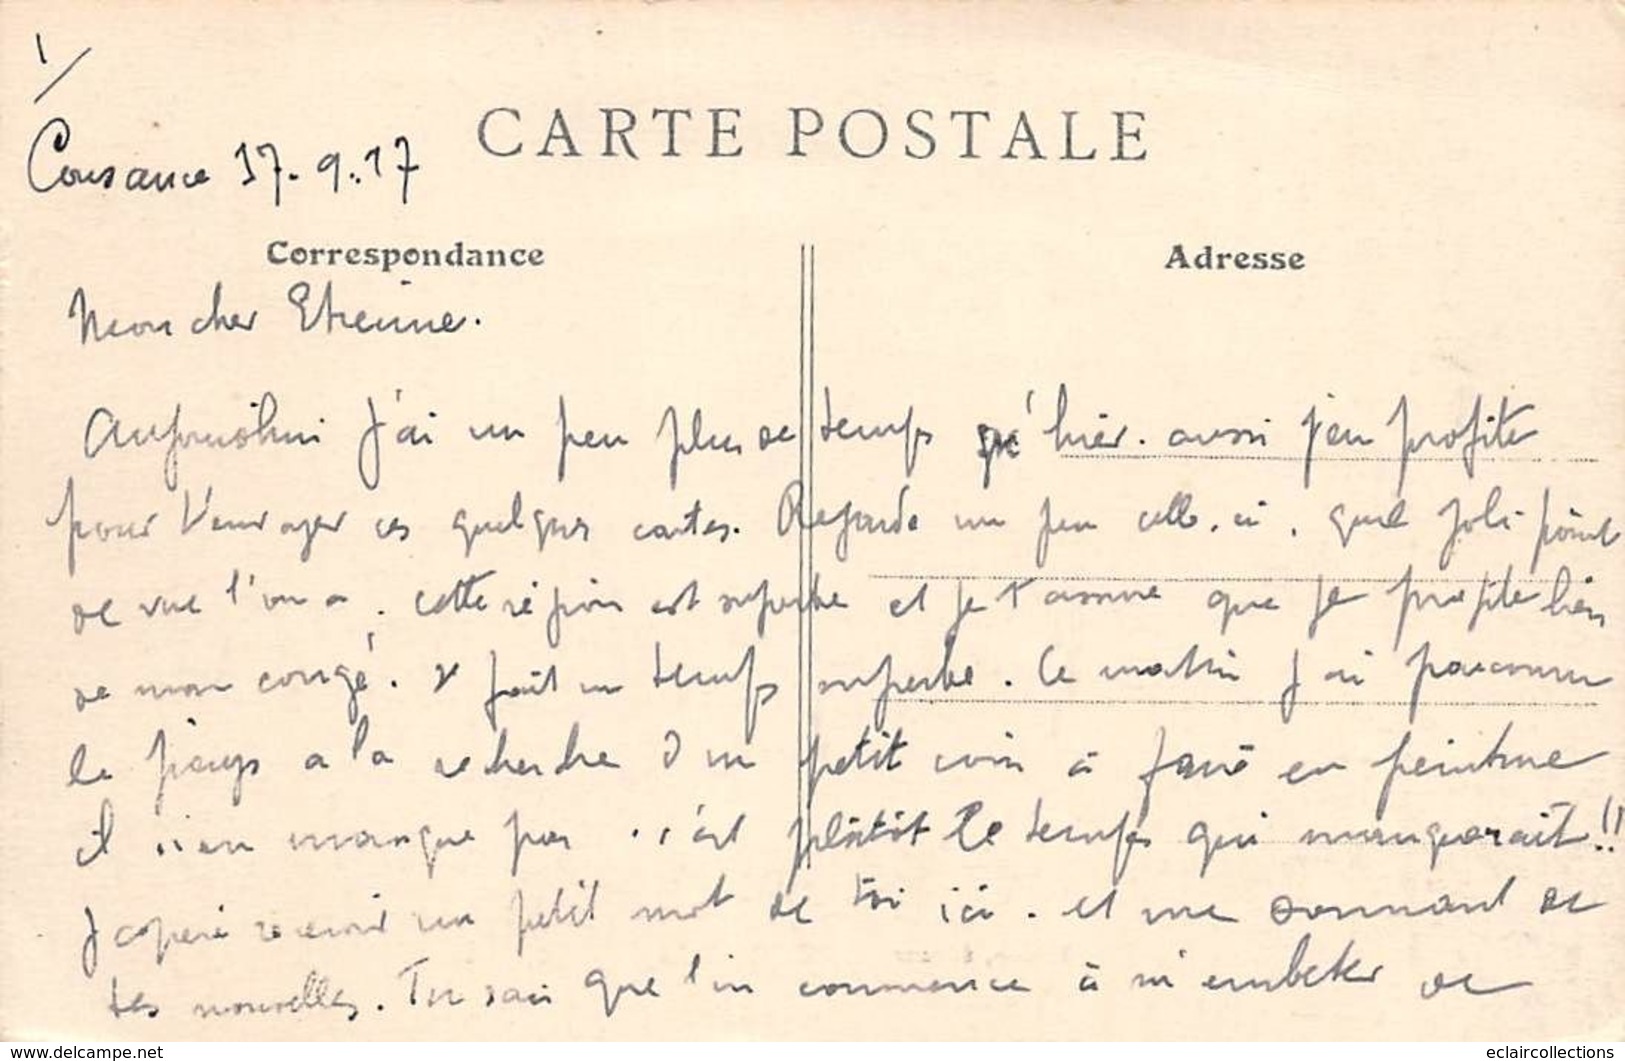 1/
CARTE POSTALE
Cousance 17.9.17
Correspondance
Adresse
Mon cher Etienne.
Aujourd'hui j'ai un peu plus de temps qu'hier. aussi j'en profite
pour t'envoyer ces quelques cartes. Regarde un peu celle-ci, quel joli point
de vue l'on a. cette région est superbe et je t'assure que je profite bien
de mon congé. Il fait un temps superbe. Ce matin j'ai parcouru
le pays a la recherche d'un petit coin à faire en peinture
il n'en manque pas. c'est plutôt le temps qui manquerait!!
J'espère recevoir un petit mot de toi ici. et me donnant de
tes nouvelles. Tu sais que l'on commence à m'embeter de
www.delcampe.net
eclaircollections